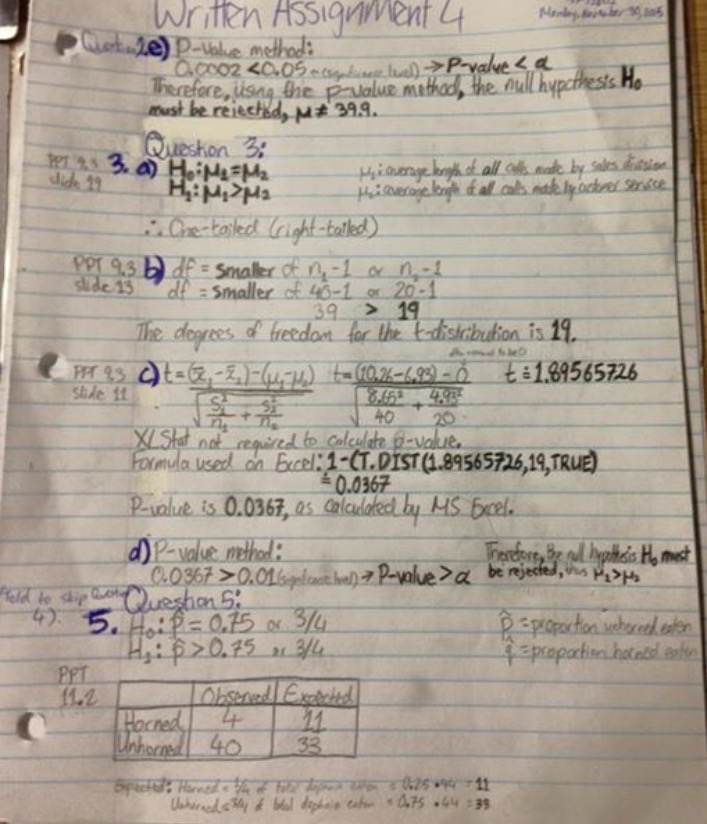 Written Assignment 4
Question 2e) P-Value method:
0.0002 < 0.05 - (significance level) → P-value < α
Therefore, using the p-value method, the null hypothesis H₀
must be rejected, μ ≠ 39.9.
Question 3:
PPT 9.3 slide 29
3. a) H₀: μ₁ = μ₂
H₁: μ₁ > μ₂
μ₁: average length of all calls made by sales division
μ₂: average length of all calls made by customer service
∴ One-tailed (right-tailed)
PPT 9.3 slide 13
b) df = smaller of n₁-1 or n₂-1
df = smaller of 40-1 or 20-1
39 > 19
The degrees of freedom for the t-distribution is 19.
PPT 9.3 slide 11
c) t = (x̄₁ - x̄₂) - (μ₁ - μ₂) / √(s₁²/n₁ + s₂²/n₂) t = (10.26 - 6.93) - 0 / √(8.65²/40 + 4.93²/20) t ≐ 1.89565726
XLStat not required to calculate p-value.
Formula used on Excel: 1-(T.DIST(1.89565726,19,TRUE)
≐ 0.0367
P-value is 0.0367, as calculated by MS Excel.
d) P-value method:
0.0367 > 0.01 (significance level) → P-value > α
Therefore, the null hypothesis H₀ must
be rejected, thus μ₁ > μ₂
(told to skip Question 4).
Question 5:
5. H₀: p̂ = 0.75 or 3/4
H₁: p̂ > 0.75 or 3/4
p̂ = proportion unhorned eaten
q̂ = proportion horned eaten
PPT 11.2
Observed Expected
Horned 4 11
Unhorned 40 33
Expected: Horned = 1/4 of total eaten = 0.25 • 44 = 11
Unhorned = 3/4 of total eaten = 0.75 • 44 = 33